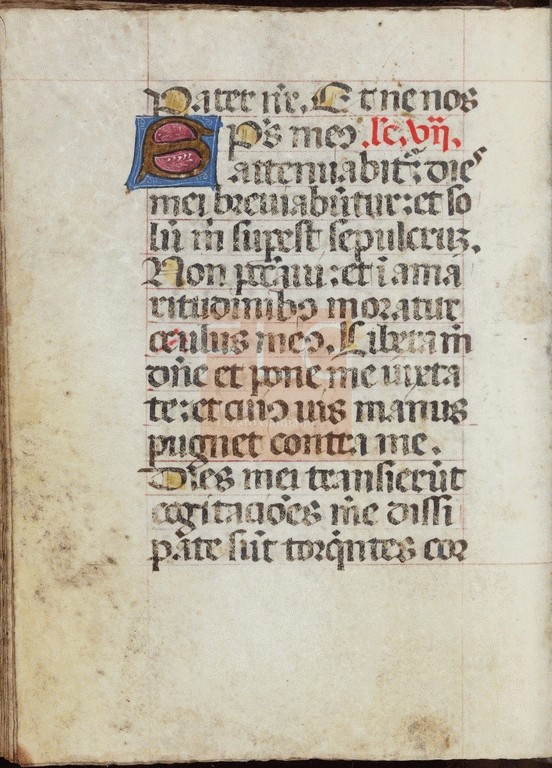 Pater nr̄. Et ne nos
Sp̄s meꝰ .lc̄. vij.
attenuabit᷑: dies
mei breuiabūtur: et so
lū m̄ suꝑest sepulcruꝫ.
Non peccaui: et ī ama
ritudinibꝰ moratur
oculus meꝰ. Libera m̄
dn̄e et pone me iuxta
te: et cuiꝰ uis manus
pugnet contra me.
Dies mei transierūt
cogitacio̅es me̅ dissi
pāte sūt torq̄ntes cor